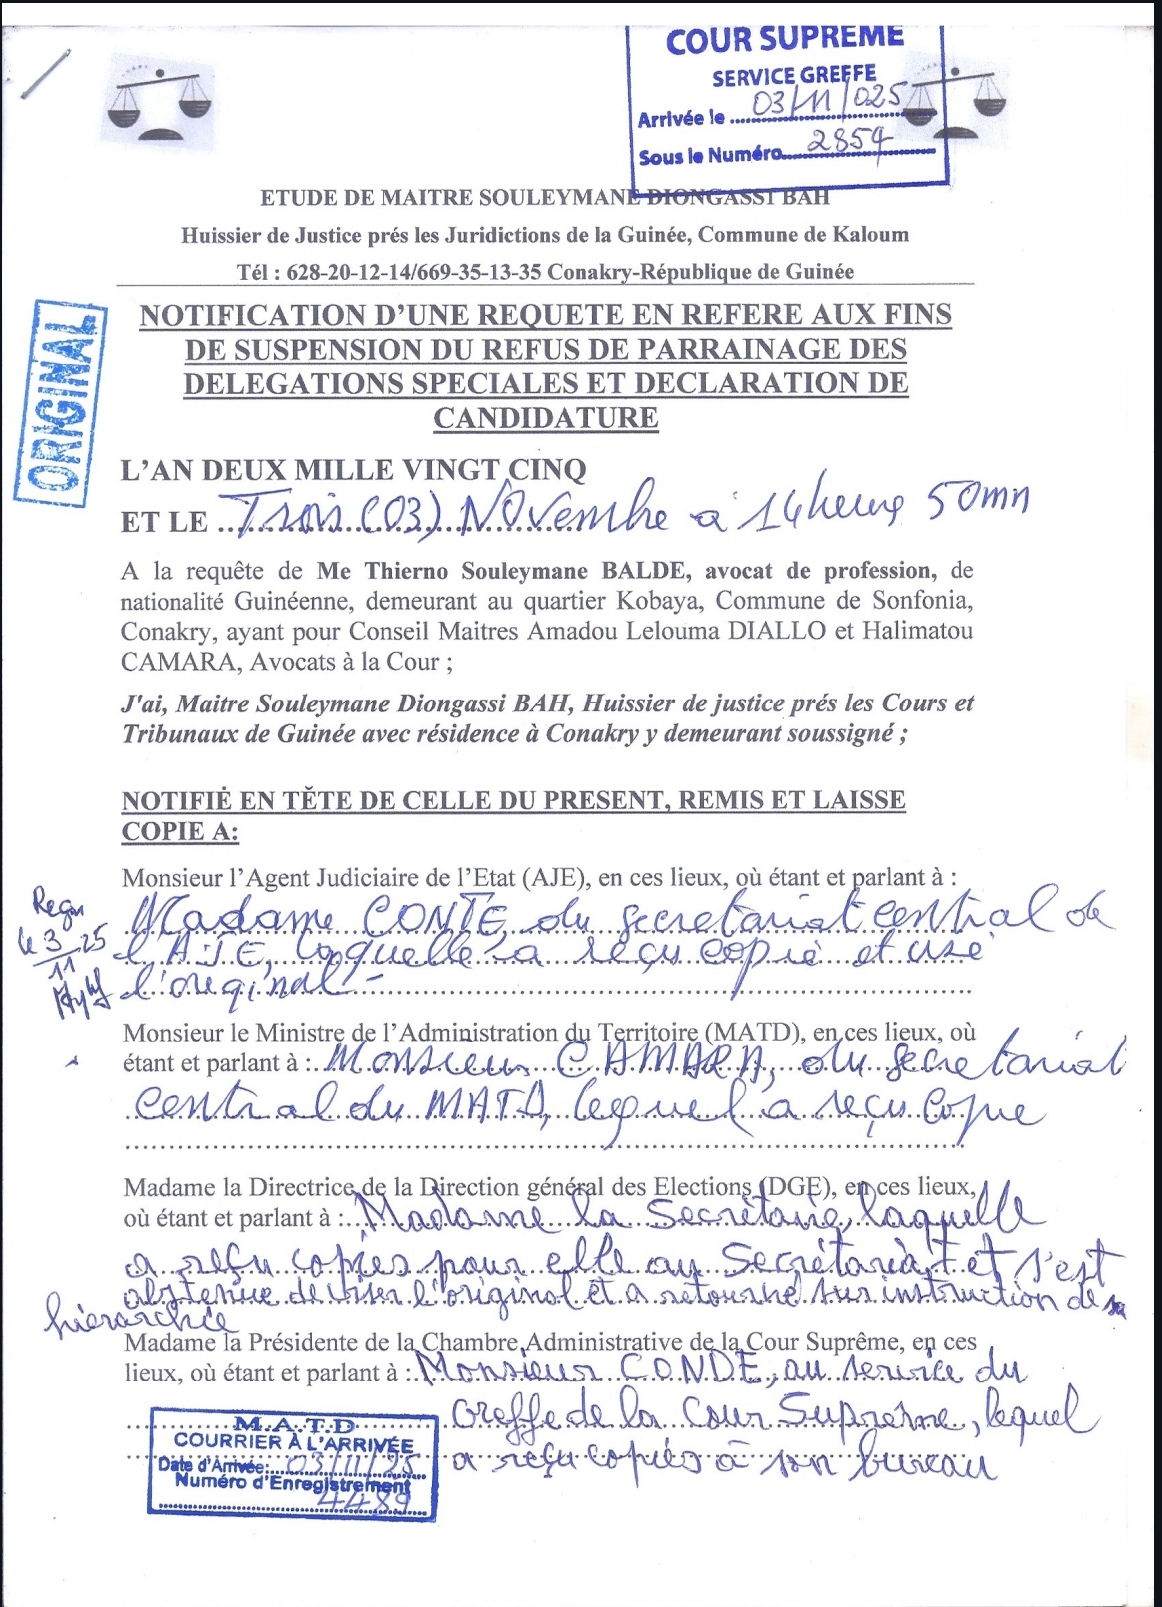 COUR SUPREME
SERVICE GREFFE
Arrivée le 03/11/025
Sous le Numéro 2859
ETUDE DE MAITRE SOULEYMANE DIONGASSI BAH
Huissier de Justice prés les Juridictions de la Guinée, Commune de Kaloum
Tél : 628-20-12-14/669-35-13-35 Conakry-République de Guinée
ORIGINAL
NOTIFICATION D'UNE REQUETE EN REFERE AUX FINS
DE SUSPENSION DU REFUS DE PARRAINAGE DES
DELEGATIONS SPECIALES ET DECLARATION DE
CANDIDATURE
L'AN DEUX MILLE VINGT CINQ
ET LE Trois (03) Novembre à 14 heures 50mn
A la requête de Me Thierno Souleymane BALDE, avocat de profession, de
nationalité Guinéenne, demeurant au quartier Kobaya, Commune de Sonfonia,
Conakry, ayant pour Conseil Maitres Amadou Lelouma DIALLO et Halimatou
CAMARA, Avocats à la Cour ;
J'ai, Maitre Souleymane Diongassi BAH, Huissier de justice prés les Cours et
Tribunaux de Guinée avec résidence à Conakry y demeurant soussigné ;
NOTIFIÉ EN TÊTE DE CELLE DU PRESENT, REMIS ET LAISSE
COPIE A:
Monsieur l'Agent Judiciaire de l'Etat (AJE), en ces lieux, où étant et parlant à :
Madame CONTE du secretariat central de
l'AJE, laquelle a reçu copie et visé
l'original
le 3 25
11
Monsieur le Ministre de l'Administration du Territoire (MATD), en ces lieux, où
étant et parlant à : Monsieur CAMARA, du secretariat
central du MATD, lequel a reçu copie
Madame la Directrice de la Direction général des Elections (DGE), en ces lieux,
où étant et parlant à : Madame la Secrétaire, laquelle
a reçu copies pour elle au Secrétariat et s'est
abstenue de viser l'original et a retourné sur instruction de sa
hiérarchie
Madame la Présidente de la Chambre Administrative de la Cour Suprême, en ces
lieux, où étant et parlant à : Monsieur CONDE, au service du
Greffe de la Cour Suprême, lequel
a reçu copies à son bureau
M.A.T.D
COURRIER À L'ARRIVÉE
Date d'Arrivée: 03/11/25
Numéro d'Enregistrement
4489